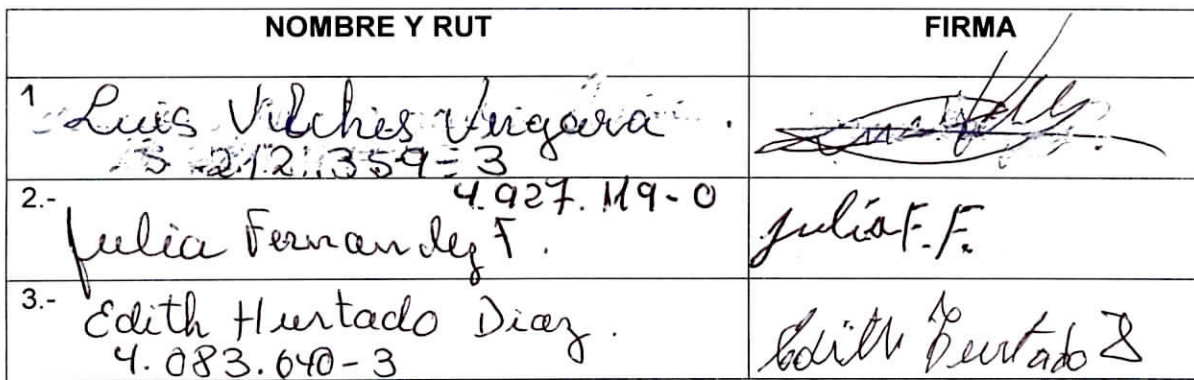 NOMBRE Y RUT FIRMA
1 Luis Vilches Vergara.
5.212.359-3
2.- 4.927.119-0
Julia Fernandez F. Julia F. F.
3.- Edith Hurtado Diaz. Edith Hurtado D
4.083.040-3